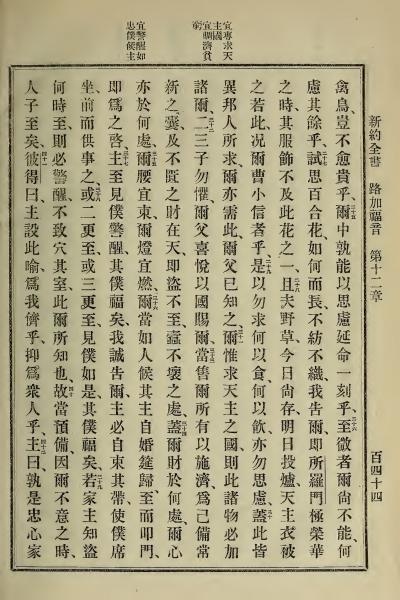 新約全書　路加福音　第十二章　百四十四
宜專求天主國
宜賙濟貧窮
宜警醒如忠僕候主
禽鳥、豈不愈貴乎、二十五爾中孰能以思慮延命一刻乎、二十六至微者爾尙不能、何
慮其餘乎、二十七試思百合花如何而長、不紡不織、我吿爾、卽所羅門極榮華
之時、其服飾不及此花之一、二十八且夫野草、今日尙存、明日投爐、天主衣被
之若此、况爾曹小信者乎、二十九是以勿求何以食、何以飲、亦勿思慮、三十蓋此皆
異邦人所求、爾亦需此、爾父已知之、三十一爾惟求天主之國、則此諸物必加
諸爾、三十二二三子勿懼、爾父喜悅以國賜爾、三十三當售爾所有以施濟、爲己備常
新之囊、及不匱之財在天、卽盜不至、蠧不壞之處、三十四蓋爾財於何處、爾心
亦於何處、三十五爾腰宜束、爾燈宜燃、三十六爾當如人候其主自婚筵歸、至而叩門、
卽爲之啟、三十七主至見僕警醒、其僕福矣、我誠吿爾、主必自束其帶、使僕席
坐、前而供事之、三十八或二更至、或三更至、見僕如是、其僕福矣、三十九若家主知盜
何時至、則必警醒、不致穴其室、此爾所知也、四十故當預備、因爾不意之時、
人子至矣、四十一彼得曰、主設此喩、爲我儕乎、抑爲衆人乎、四十二主曰、孰是忠心家